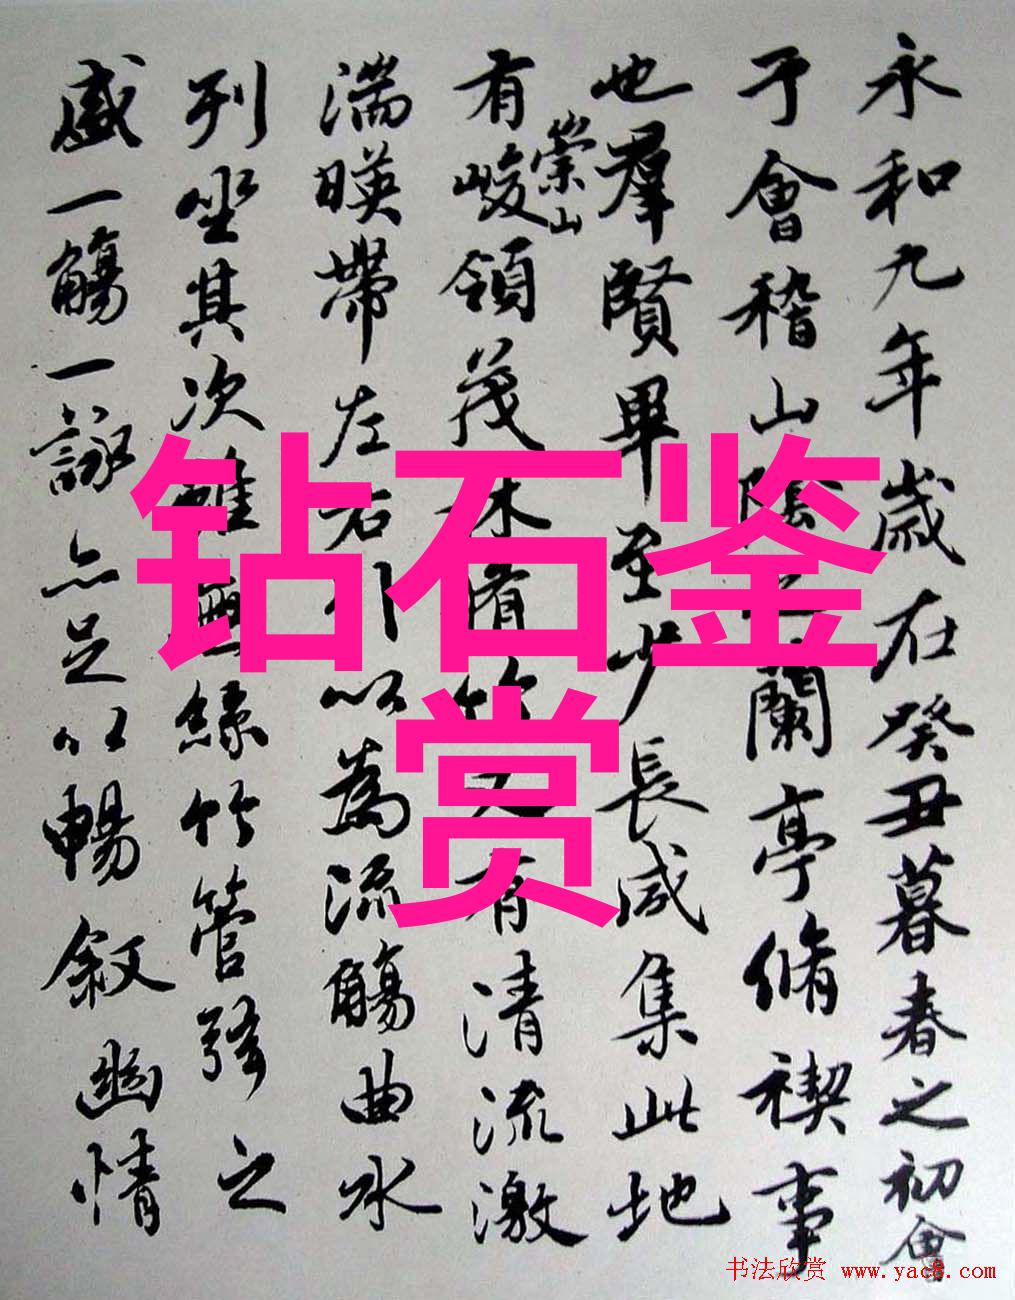 永和九年歲在癸丑暮春之初會
于會稽山陰之蘭亭脩禊事
也羣賢畢至少長咸集此地
有崇山峻領茂林脩竹又有清流激
湍暎帶左右引以為流觴曲水
列坐其次雖無絲竹管弦之
盛一觴一詠亦足以暢敘幽情
钻石鉴
赏
书法欣赏 www.yac8.com